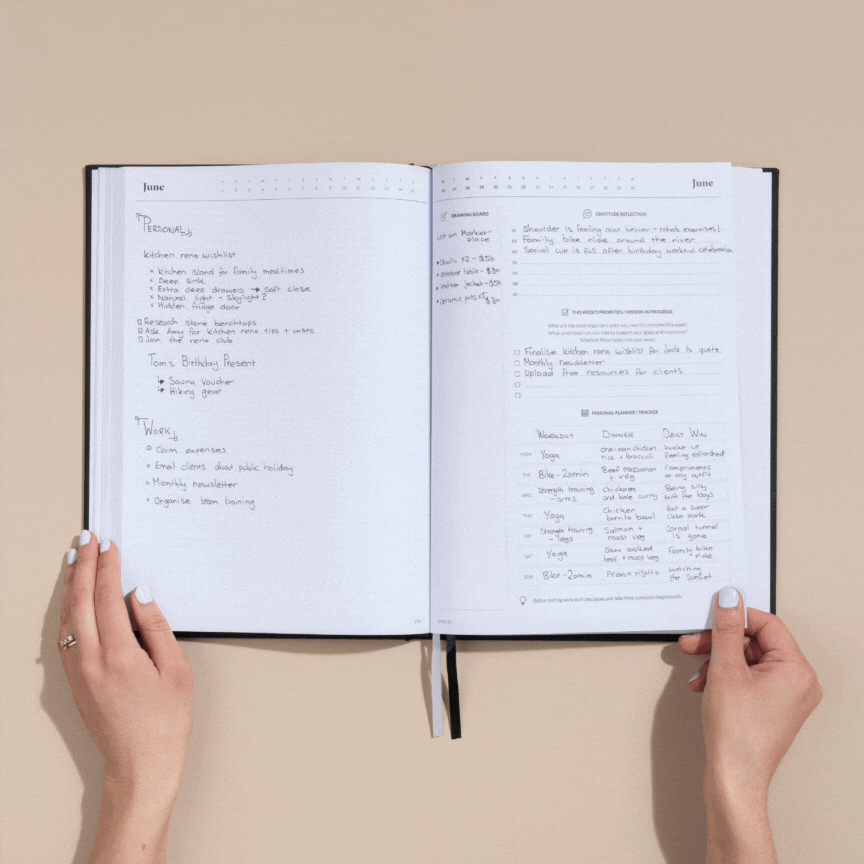 June
PERSONAL
kitchen reno wishlist
x kitchen island for family mealtimes
x Deep sink
x Extra deep drawers → soft close
x Natural light - Skylight?
x Hidden fridge door
Research stone benchtops
Ask Amy for kitchen reno tips + costs
Join the reno club
Tom's Birthday Present
↳ Sauna voucher
↳ Hiking gear
WORK
Claim expenses
Email clients about public holiday
Monthly newsletter
Organise team training
June
DRAWING BOARD
List on Market-
place
x2 - $50
outdoor table - $80
jacket - $50
ceramic pots x5
$30
GRATITUDE REFLECTION
Shoulder is feeling alot better - rehab exercises!
Family bike ride around the river
Social cup is full after birthday weekend celebration
THIS WEEK'S PRIORITIES / MISSION IN PROGRESS
What are the most important tasks you need to complete this week?
What small steps can you take to support your goals and mission?
Schedule these tasks into your week.
Finalise kitchen reno wishlist for Jack to quote
Monthly newsletter
Upload free resources for clients
PERSONAL PLANNER / TRACKER
WORKOUT DINNER DAILY WIN
MON Yoga one-pan chicken rice + broccoli woke up feeling refreshed
TUE Bike - 20min Beef massaman + veg Compliments on my outfit
WED Strength training - arms Chickpea and kale curry Being silly with the boys
THU Yoga Chicken burrito bowl Got a super close park
FRI Strength training - legs Salmon + roast veg Carpal tunnel is gone
SAT Yoga Slow cooked beef + roast veg Family bike ride
SUN Bike - 20min Prawn risotto Watching the sunset
Before starting work each day, pause and take three conscious deep breaths.